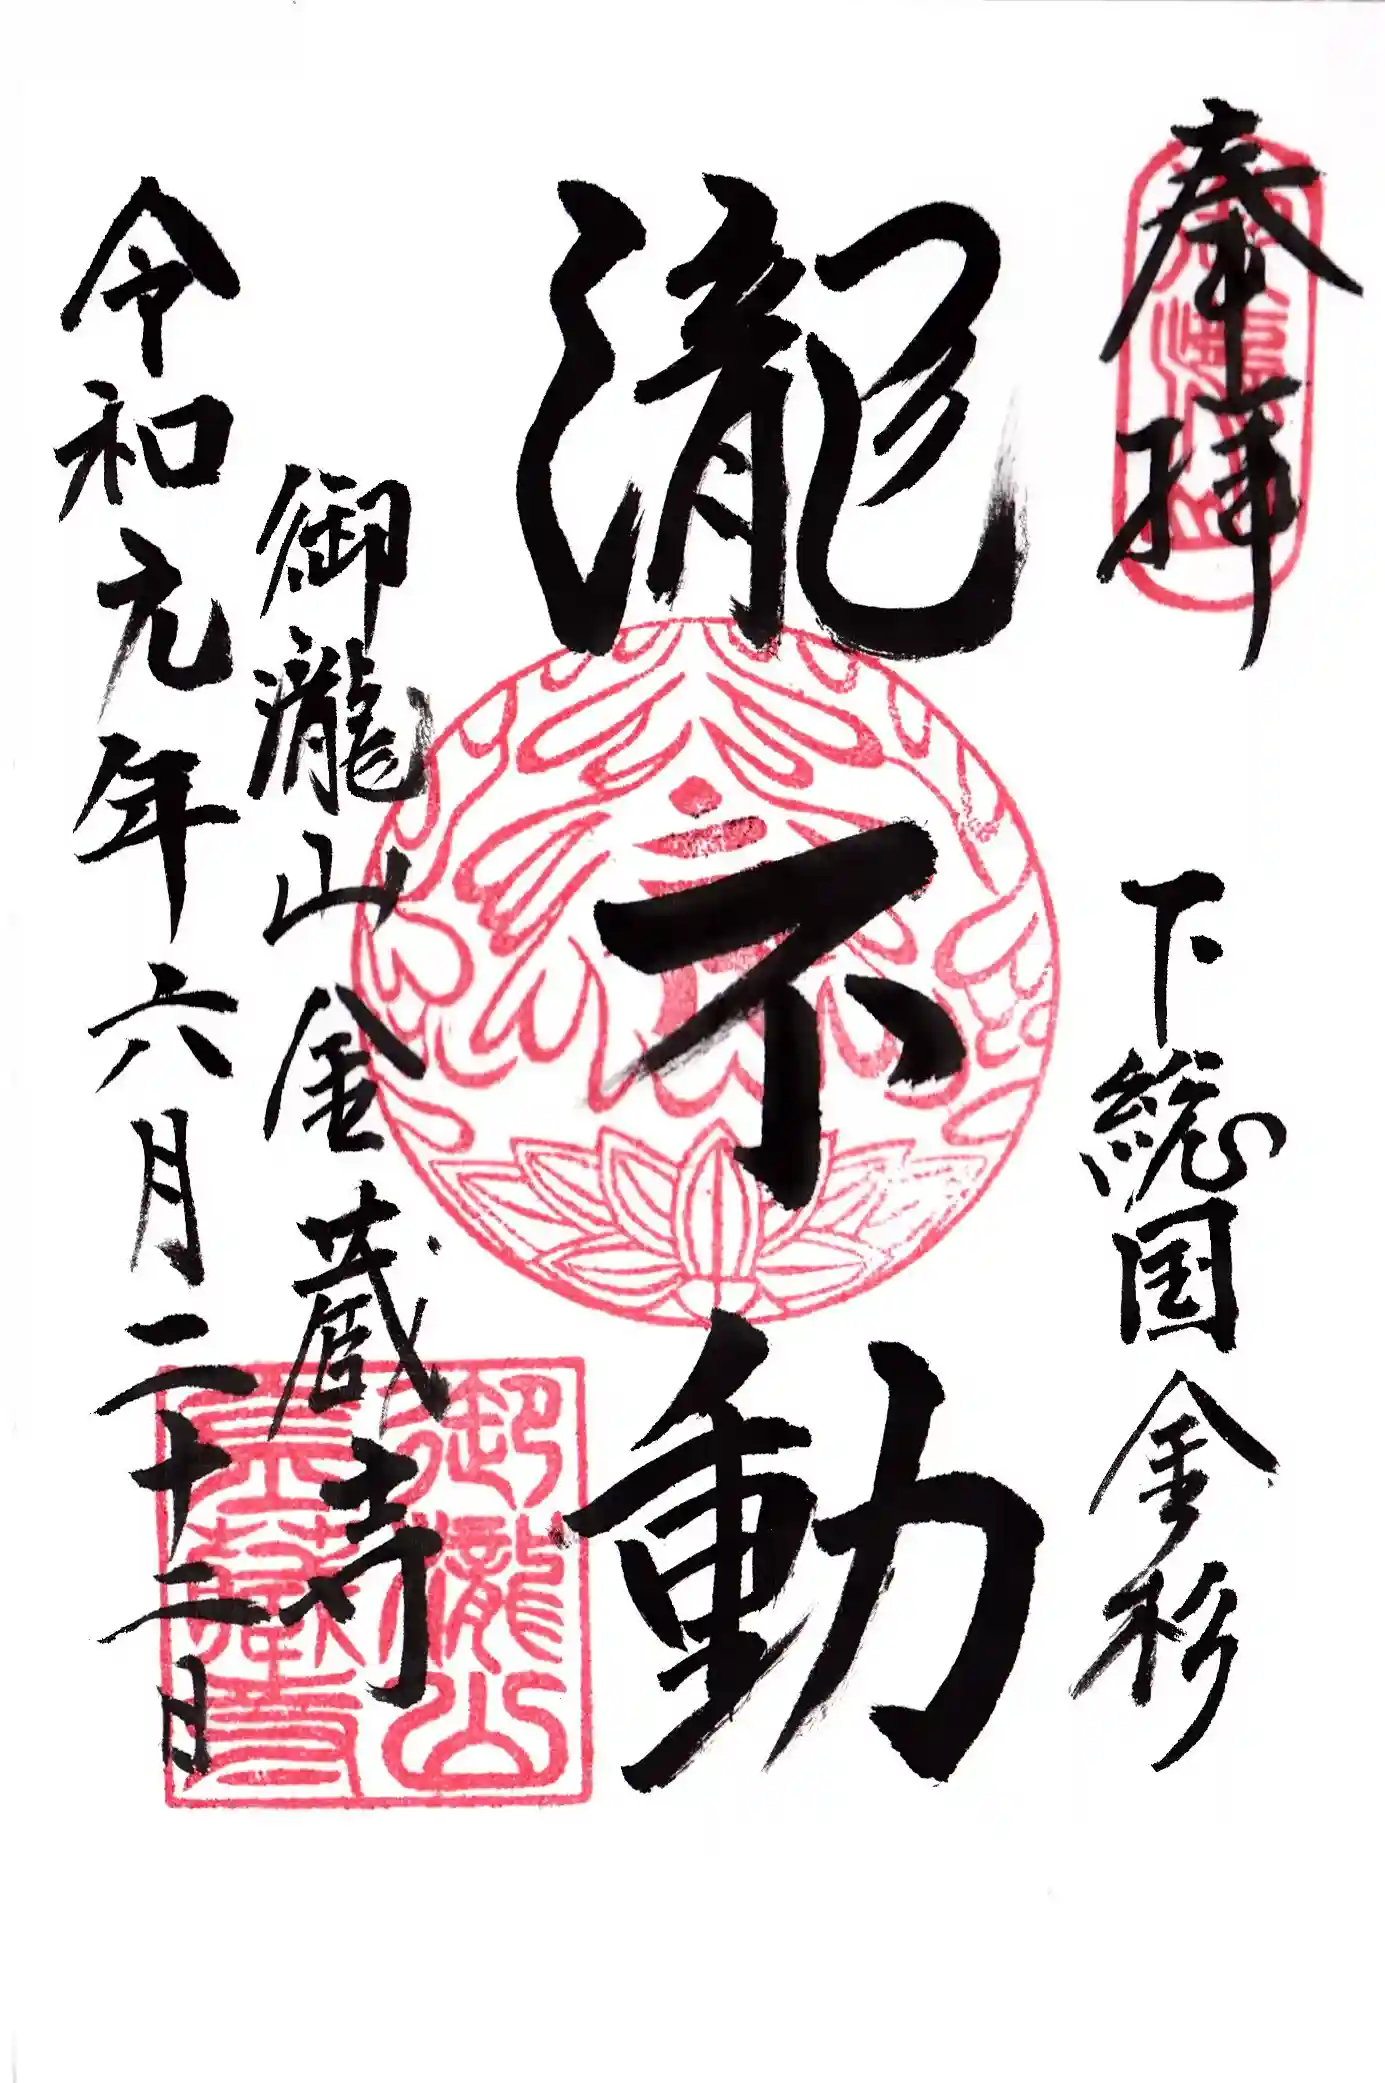 奉拝
下総国金杉
瀧不動
御瀧山金蔵寺
令和元年六月二十二日
御瀧山
金蔵寺